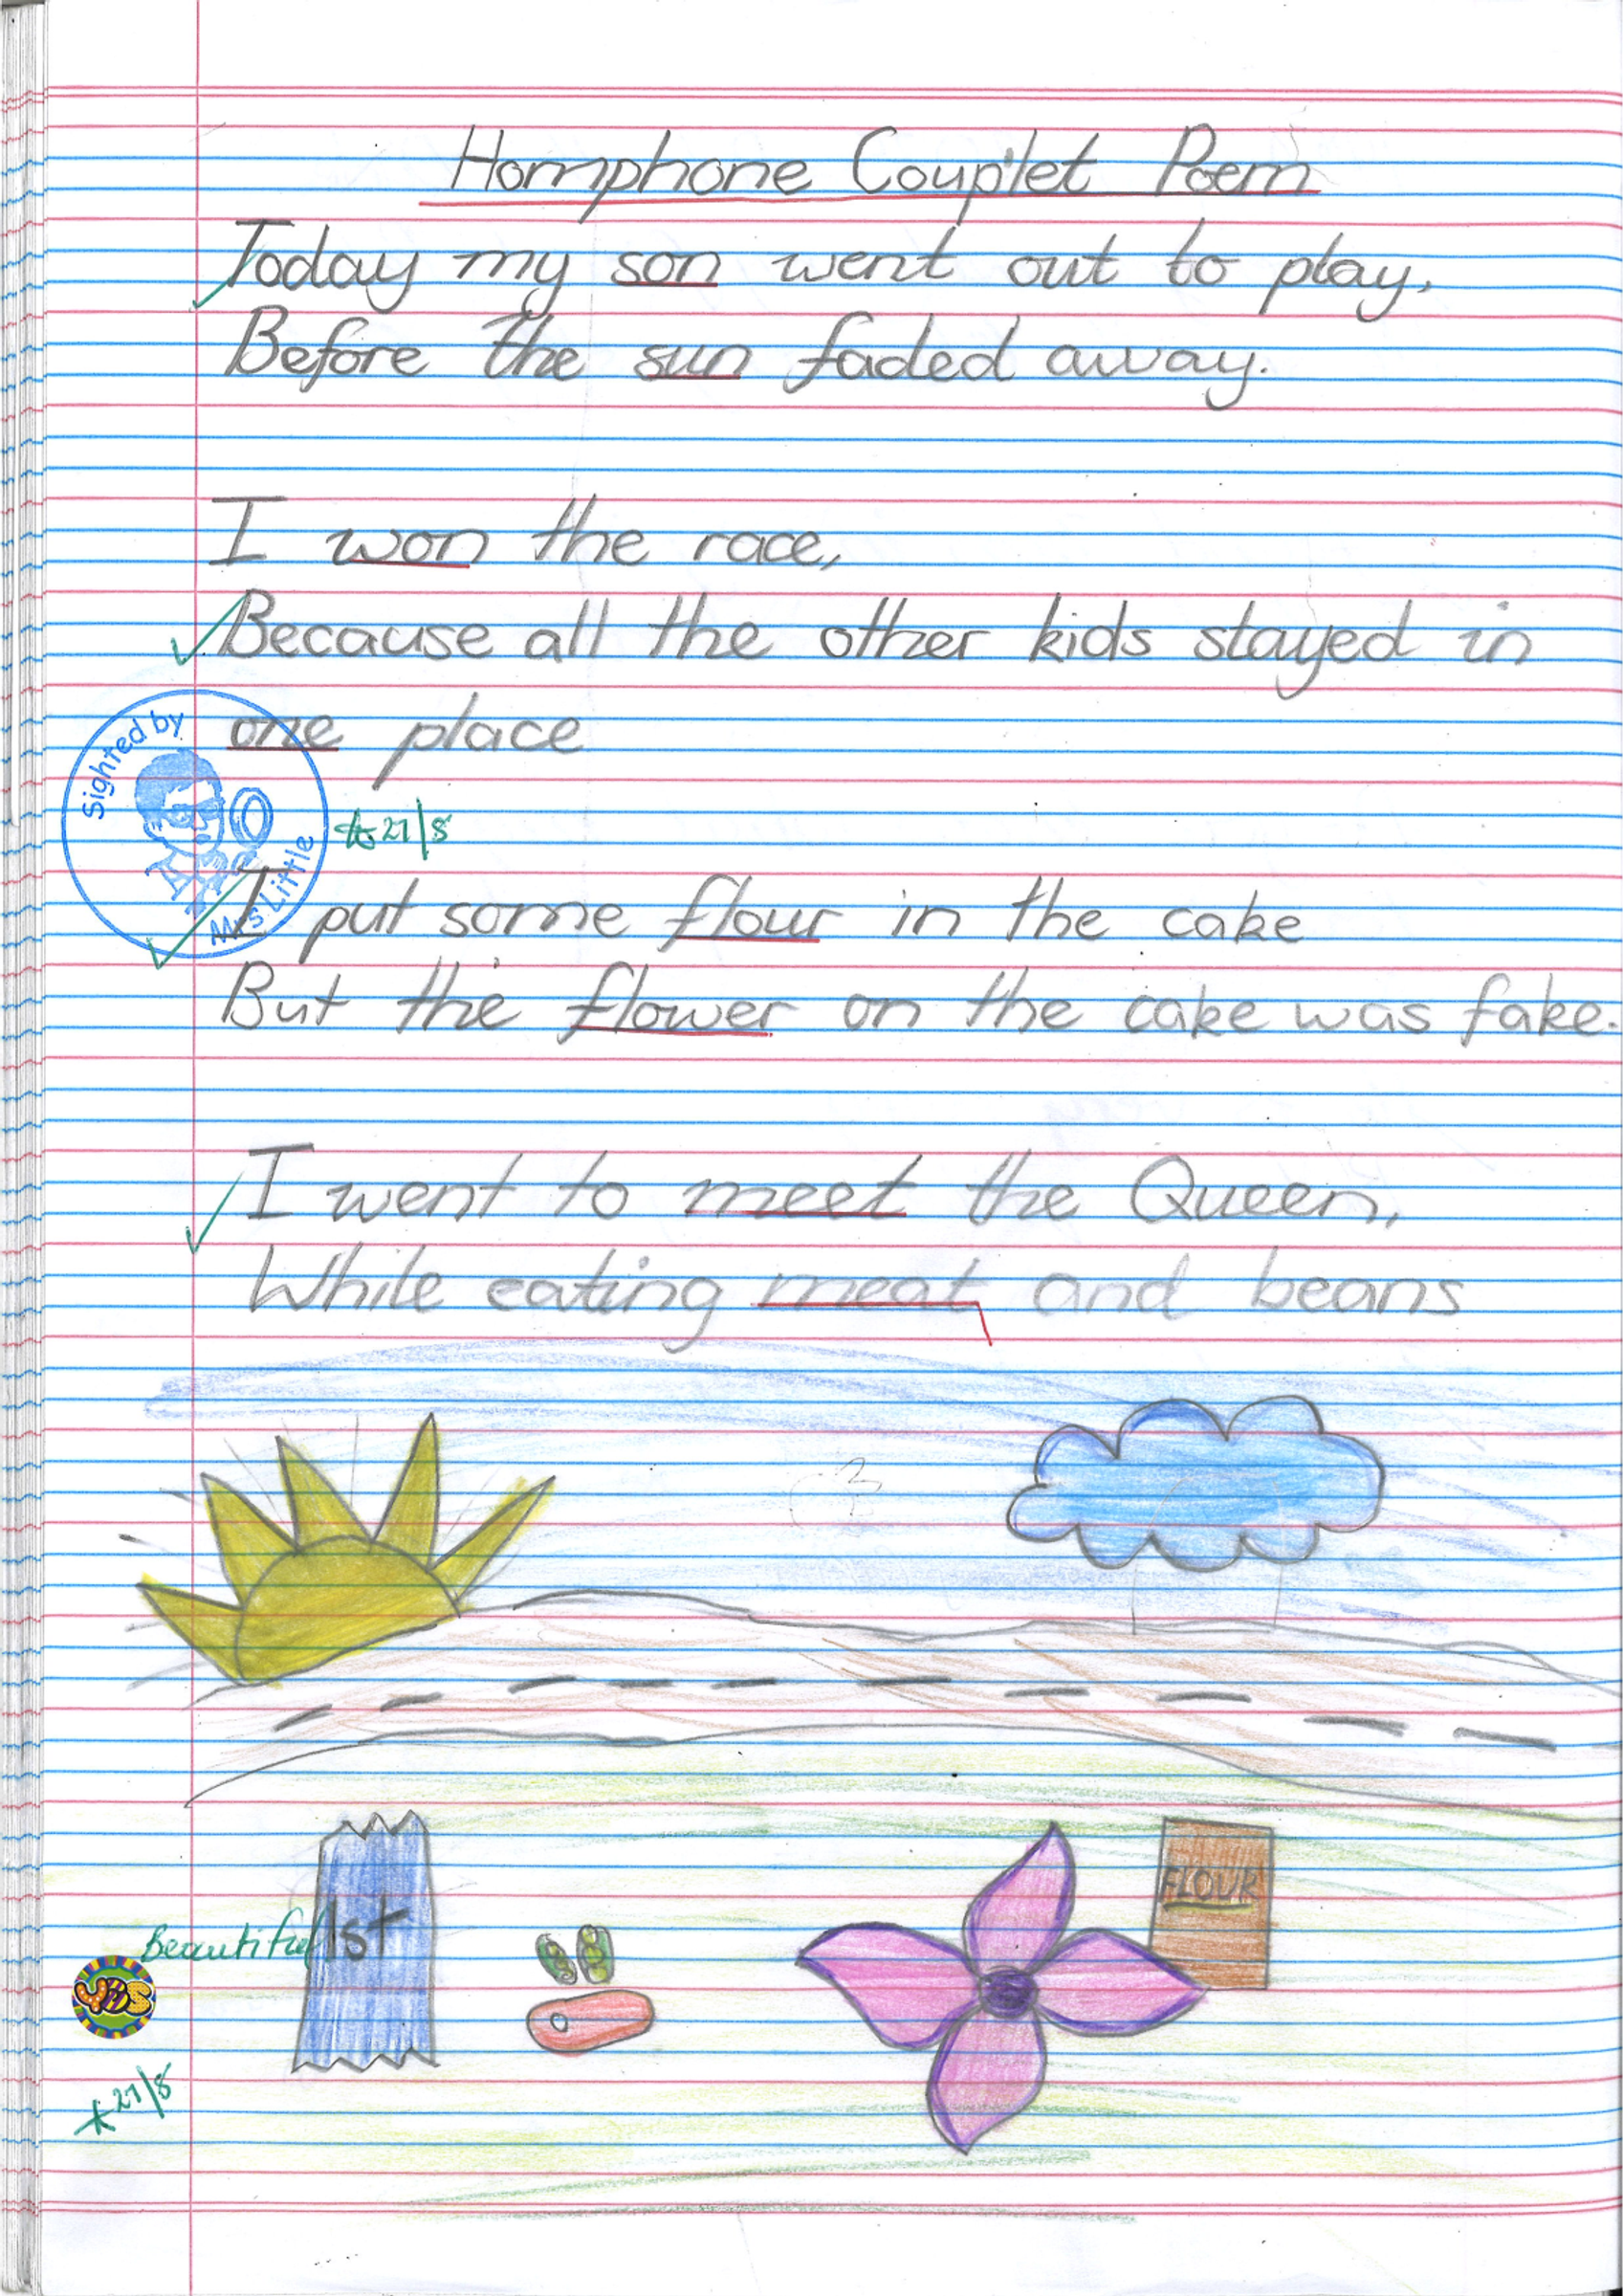 Homphone Couplet Poem
Today my son went out to play,
Before the sun faded away.
I won the race,
Because all the other kids stayed in
one place
Sighted by
Mrs Little
21/8
I put some flour in the cake
But the flower on the cake was fake.
I went to meet the Queen,
While eating meat and beans
FLOUR
Beautiful
1st
YES
21/8